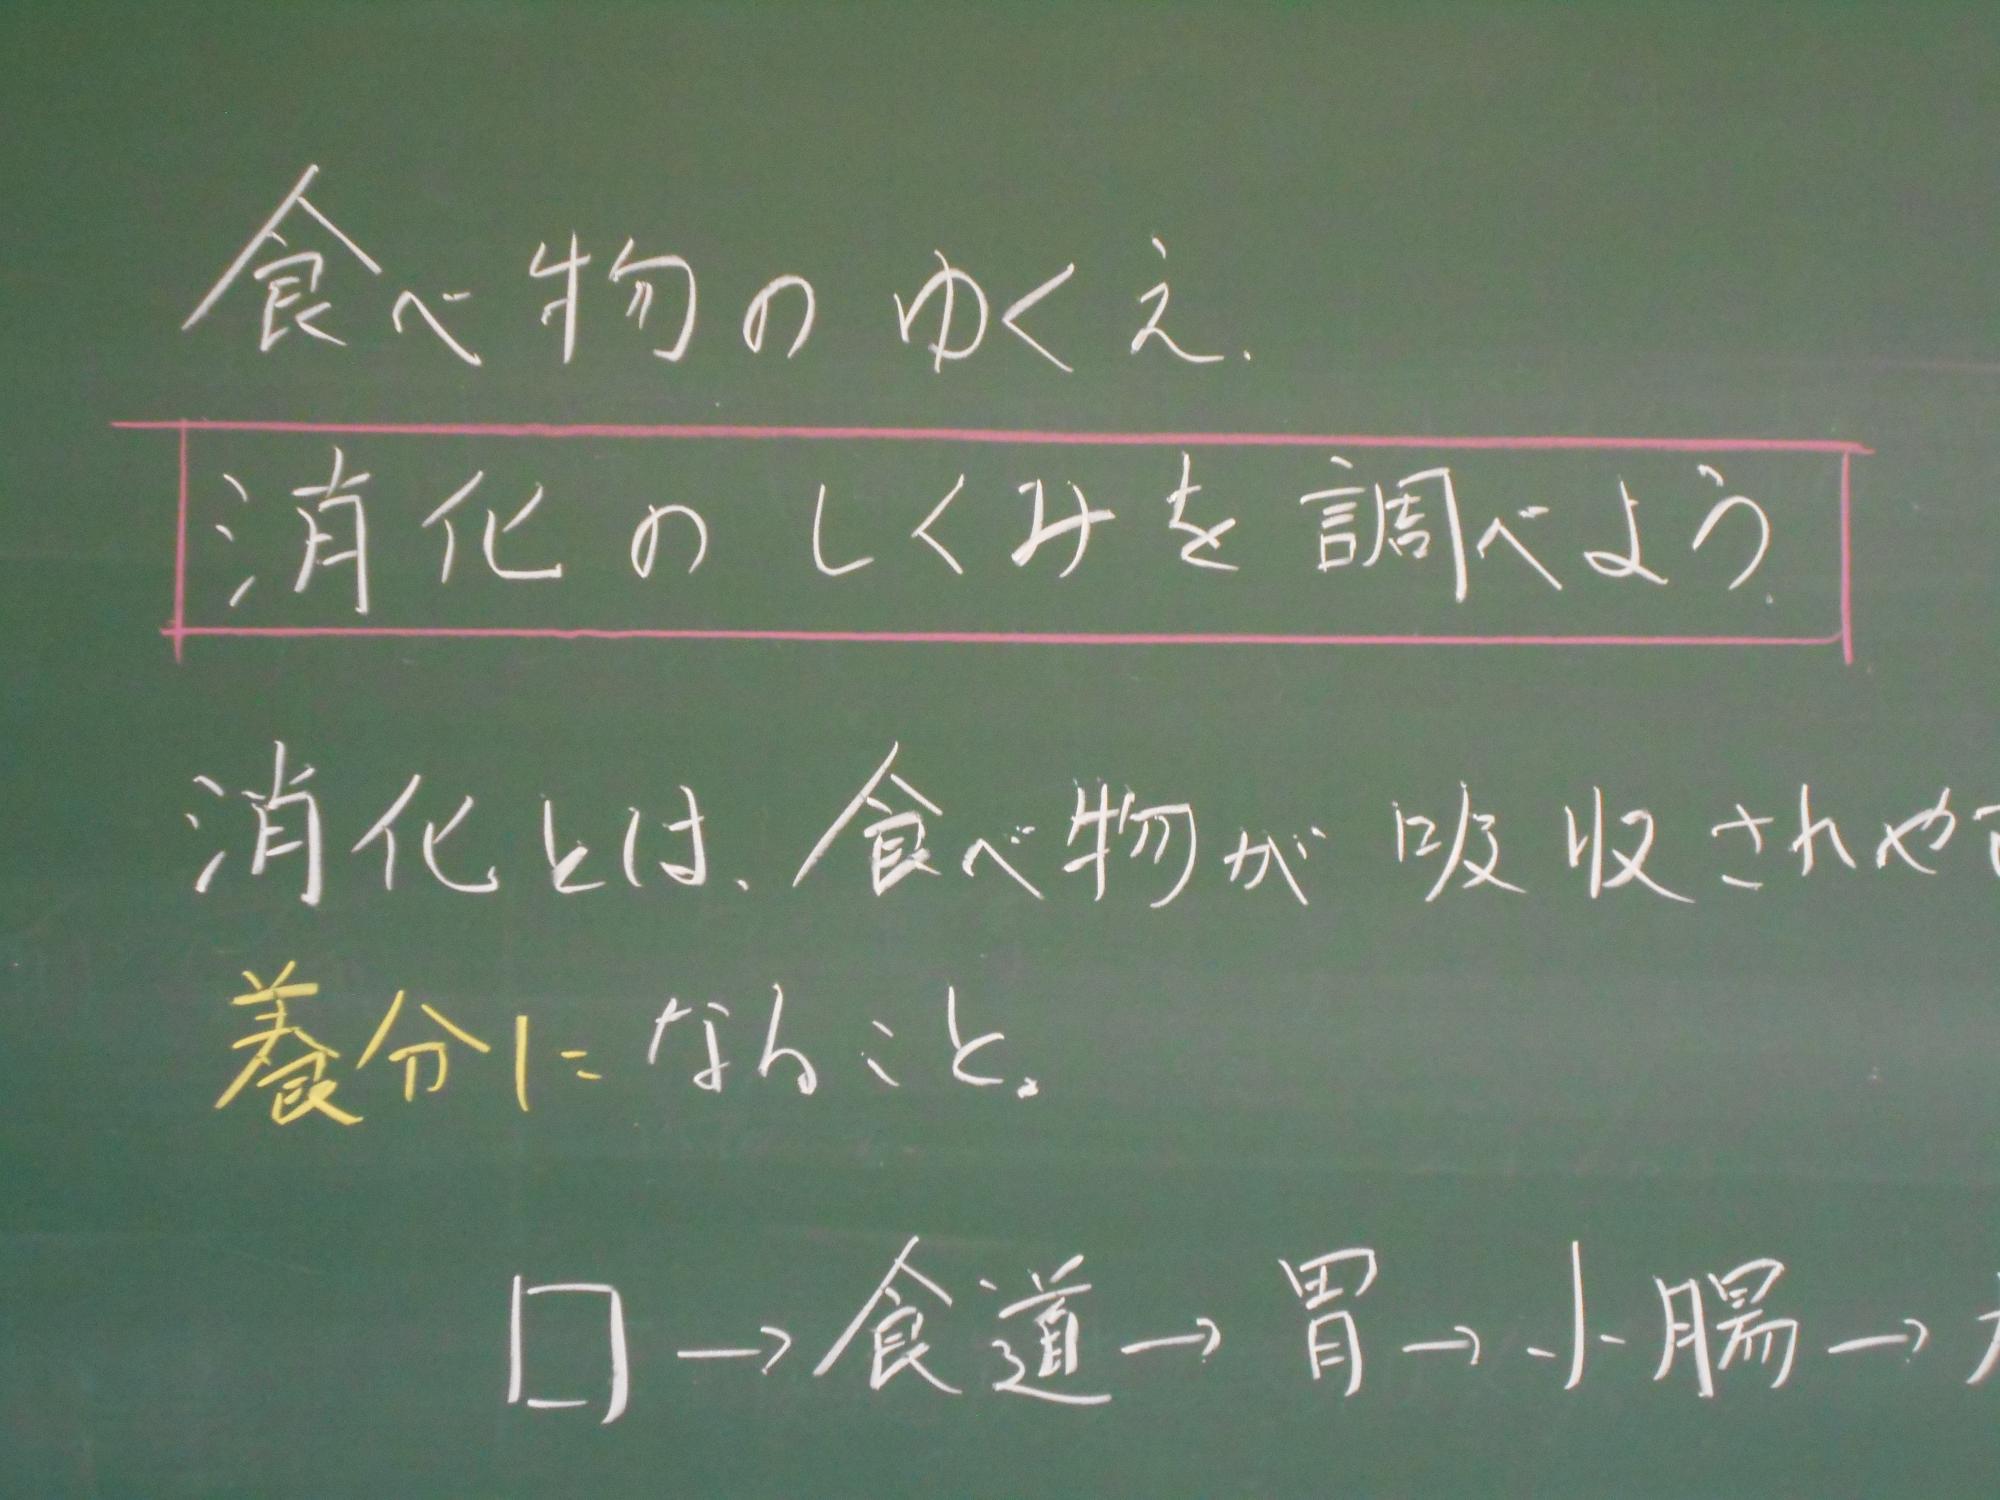 食べ物のゆくえ.
消化のしくみを調べよう.
消化とは、食べ物が吸収されや
養分になること。
口→食道→胃→小腸→